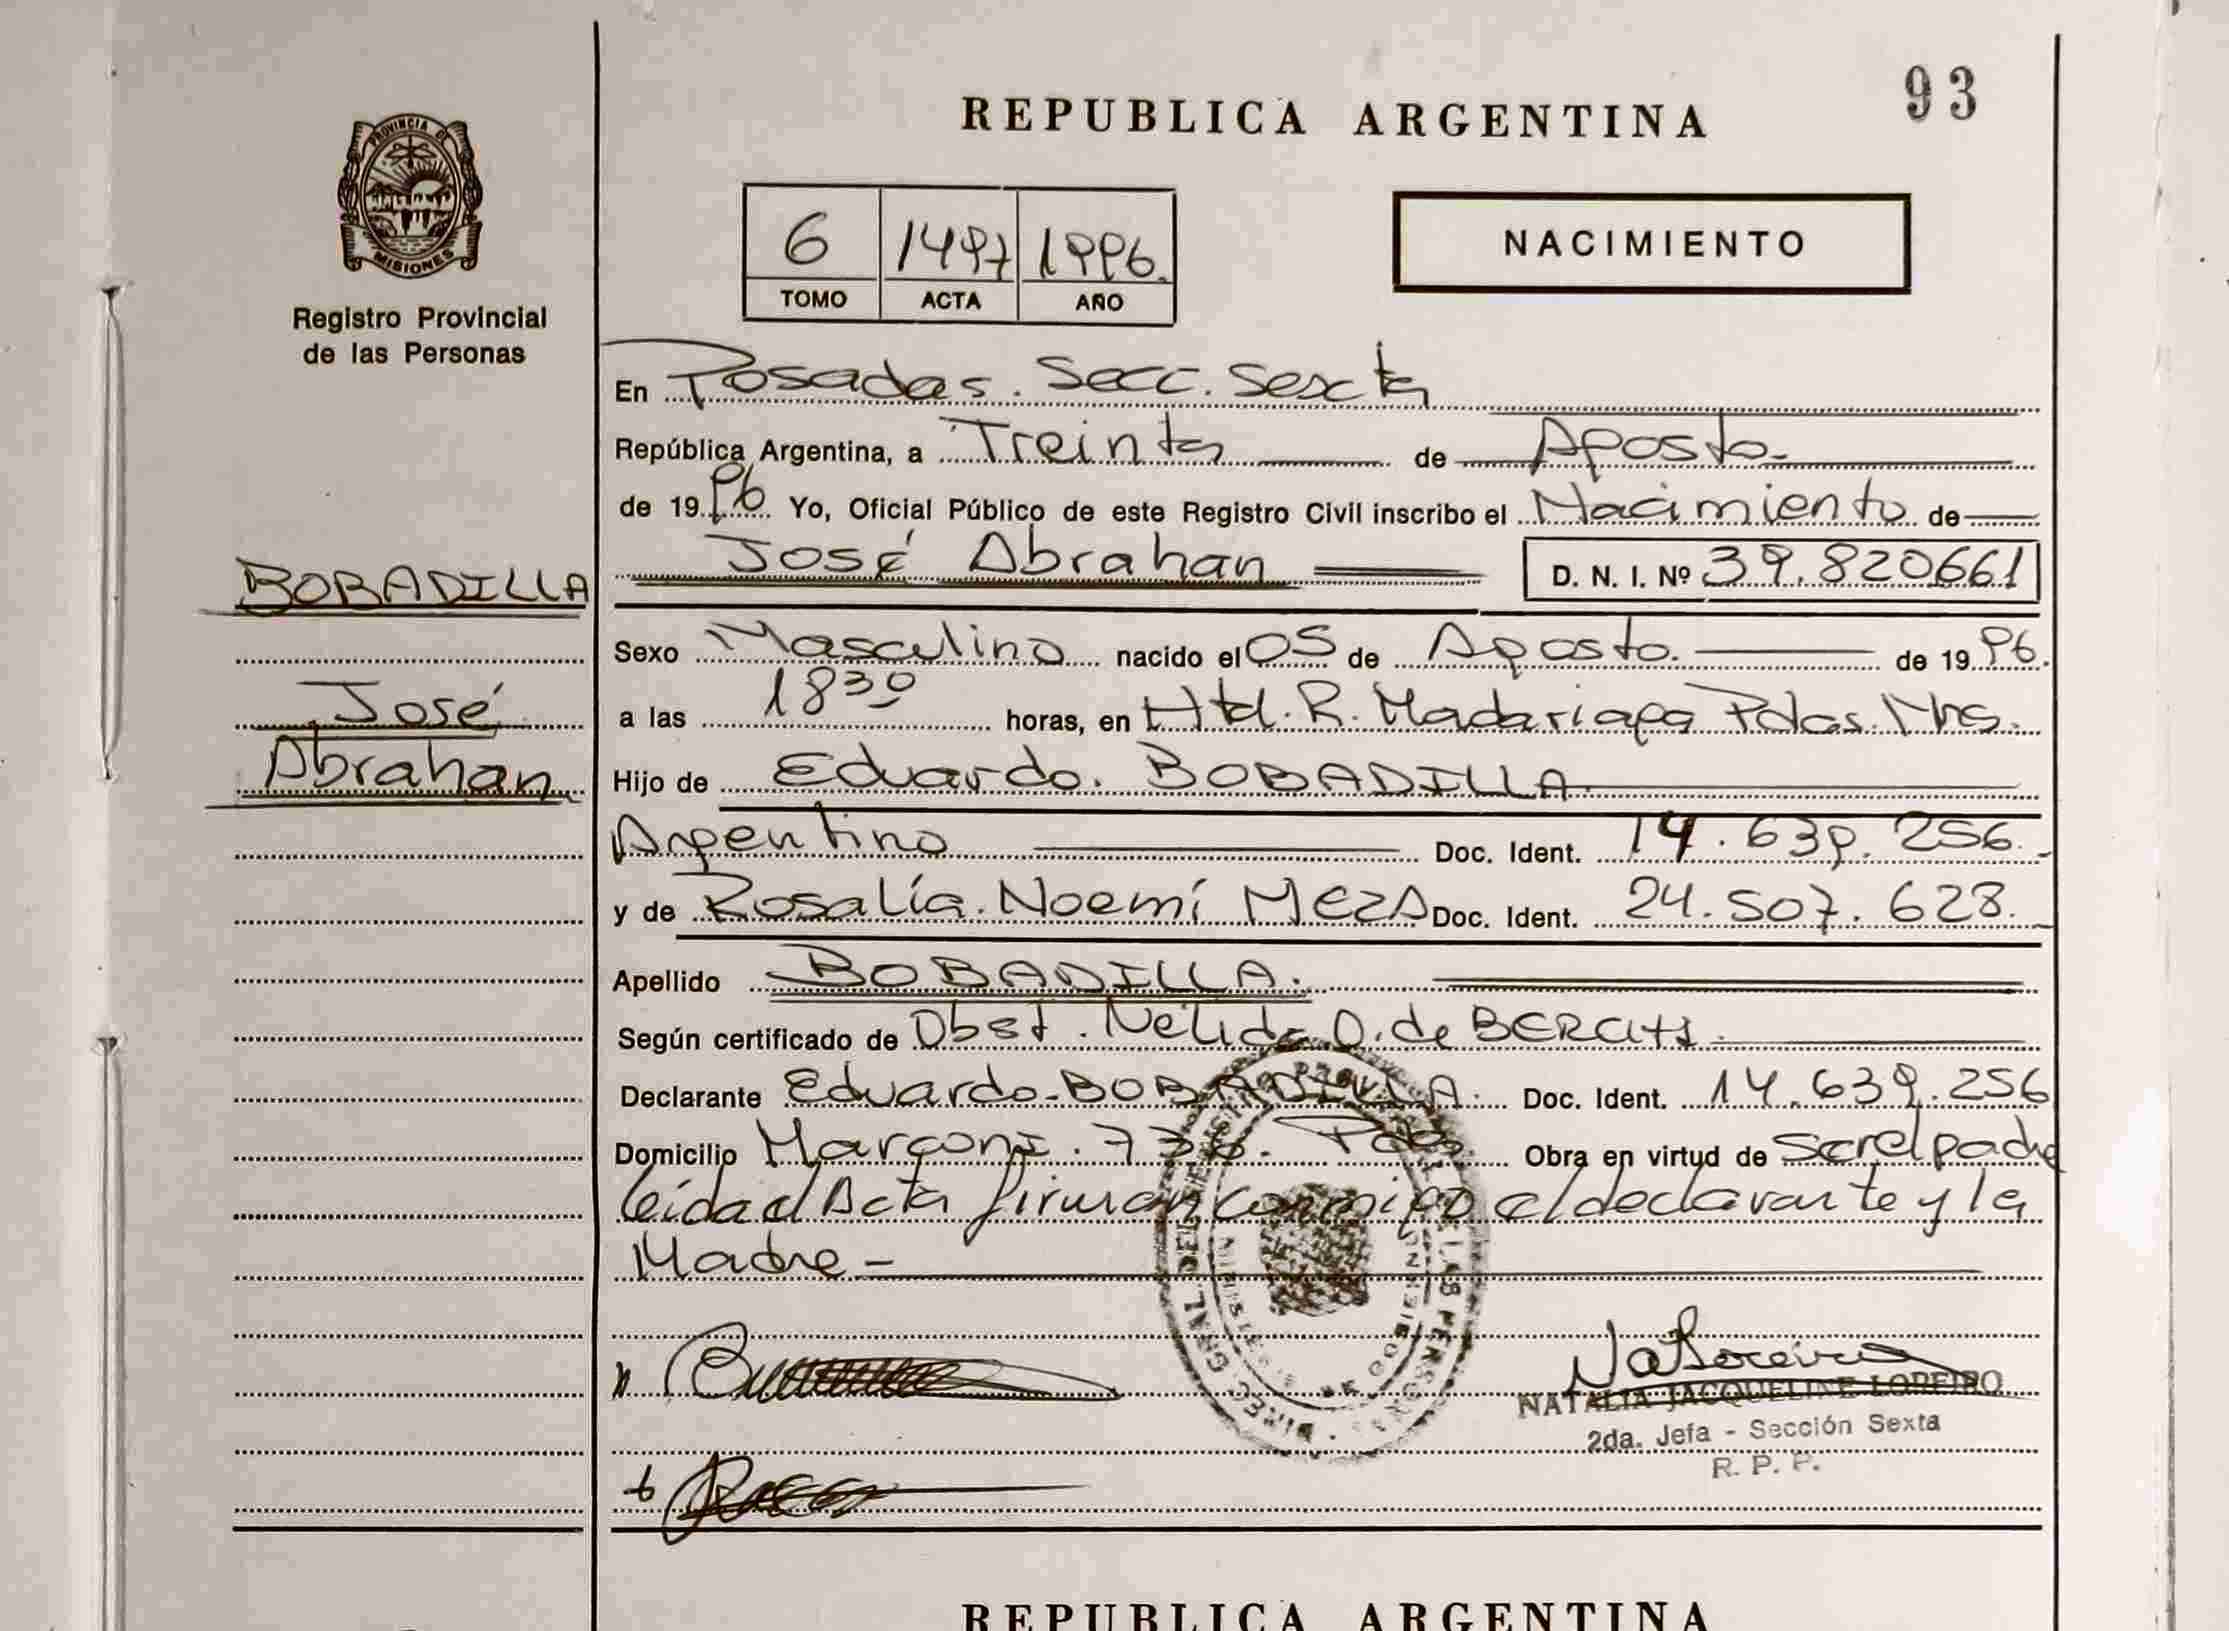 93
REPUBLICA ARGENTINA
PROVINCIA DE
MISIONES
Registro Provincial
de las Personas
6 1497 1996.
TOMO ACTA AÑO
NACIMIENTO
En Posadas. Secc. Sexta
República Argentina, a Treinta de Agosto.
de 1996 Yo, Oficial Público de este Registro Civil inscribo el Nacimiento de
BOBADILLA
José Abrahan D. N. I. Nº 39.820661
Sexo Masculino nacido el 05 de Agosto. de 1996.
José
a las 18 30 horas, en Htal. R. Madariaga Pdas. Mns.
Abrahan
Hijo de Eduardo. BOBADILLA
Argentino Doc. Ident. 14.639.256.
y de Rosalía. Noemí MEZA Doc. Ident. 24.507.628.
Apellido BOBADILLA.
Según certificado de Obst. Nelida O. de
Declarante Eduardo-BOBADILLA. Doc. Ident. 14.639.256
Domicilio Marconi. Pdas. Obra en virtud de padre
leida el Acta firman conmigo el declarante y la
Madre -
NATALIA JACQUELINE LOREIRO
2da. Jefa - Sección Sexta
R. P. P.
REPUBLICA ARGENTINA